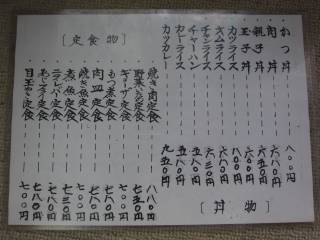 [丼物]
かつ丼 八〇〇円
肉丼 六五〇円
親子丼 六五〇円
玉子丼 六〇〇円
カツライス 八〇〇円
オムライス 六五〇円
チキンライス 六三〇円
チャーハン 五八〇円
カレーライス 五八〇円
カツカレー 九五〇円
[定食物]
焼き肉定食 八八〇円
野菜いため定食 七五〇円
ギョーザ定食 七〇〇円
もつ煮定食 七八〇円
肉皿定食 七八〇円
焼き魚定食 七〇〇円
煮魚定食 七三〇円
ラーメン定食 七八〇円
あじフライ定食 七八〇円
目玉やき定食 七〇〇円